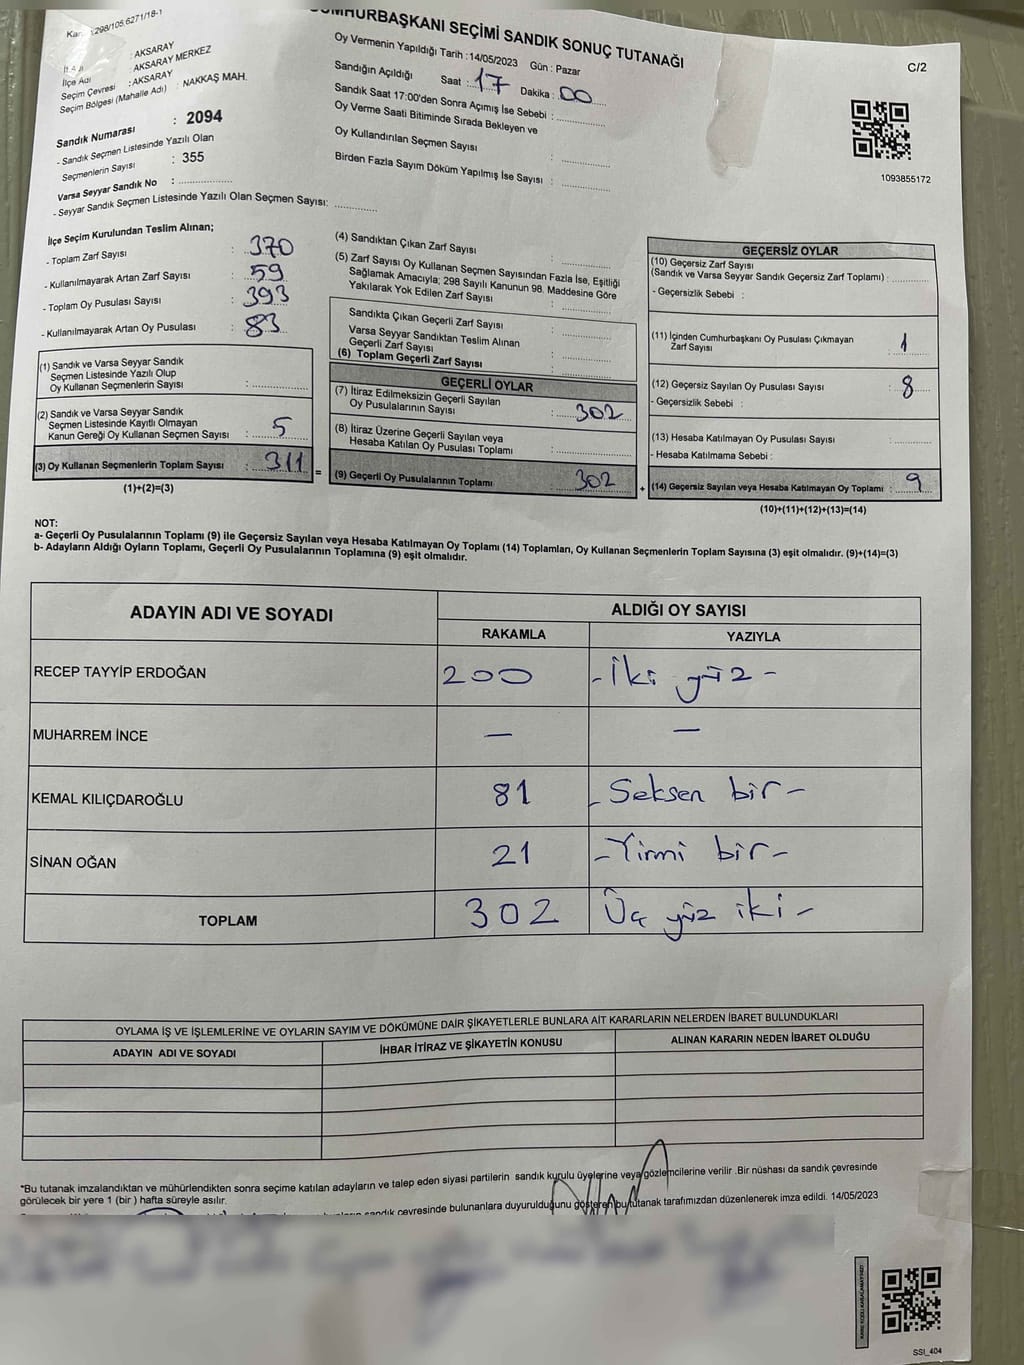 CUMHURBAŞKANI SEÇİMİ SANDIK SONUÇ TUTANAĞI
298/105.6271/18-1
C/2
İlçe Adı : AKSARAY MERKEZ
Seçim Çevresi : AKSARAY
Seçim Bölgesi (Mahalle Adı) : NAKKAŞ MAH.
: AKSARAY
Sandık Numarası : 2094
- Sandık Seçmen Listesinde Yazılı Olan
Seçmenlerin Sayısı : 355
Varsa Seyyar Sandık No :
- Seyyar Sandık Seçmen Listesinde Yazılı Olan Seçmen Sayısı:
Oy Vermenin Yapıldığı Tarih : 14/05/2023 Gün : Pazar
Sandığın Açıldığı Saat : 17 Dakika : 00
Sandık Saat 17:00'den Sonra Açımış İse Sebebi :
Oy Verme Saati Bitiminde Sırada Bekleyen ve
Oy Kullandırılan Seçmen Sayısı :
Birden Fazla Sayım Döküm Yapılmış İse Sayısı :
1093855172
İlçe Seçim Kurulundan Teslim Alınan;
- Toplam Zarf Sayısı : 370
- Kullanılmayarak Artan Zarf Sayısı : 59
- Toplam Oy Pusulası Sayısı : 393
- Kullanılmayarak Artan Oy Pusulası : 83
(1) Sandık ve Varsa Seyyar Sandık
Seçmen Listesinde Yazılı Olup
Oy Kullanan Seçmenlerin Sayısı :
(2) Sandık ve Varsa Seyyar Sandık
Seçmen Listesinde Kayıtlı Olmayan
Kanun Gereği Oy Kullanan Seçmen Sayısı : 5
(3) Oy Kullanan Seçmenlerin Toplam Sayısı : 311 =
(1)+(2)=(3)
(4) Sandıktan Çıkan Zarf Sayısı :
(5) Zarf Sayısı Oy Kullanan Seçmen Sayısından Fazla İse, Eşitliği
Sağlamak Amacıyla; 298 Sayılı Kanunun 98. Maddesine Göre
Yakılarak Yok Edilen Zarf Sayısı :
Sandıkta Çıkan Geçerli Zarf Sayısı :
Varsa Seyyar Sandıktan Teslim Alınan
Geçerli Zarf Sayısı :
(6) Toplam Geçerli Zarf Sayısı :
GEÇERLİ OYLAR
(7) İtiraz Edilmeksizin Geçerli Sayılan
Oy Pusulalarının Sayısı : 302
(8) İtiraz Üzerine Geçerli Sayılan veya
Hesaba Katılan Oy Pusulası Toplamı :
(9) Geçerli Oy Pusulalarının Toplamı : 302 +
GEÇERSİZ OYLAR
(10) Geçersiz Zarf Sayısı
(Sandık ve Varsa Seyyar Sandık Geçersiz Zarf Toplamı) :
- Geçersizlik Sebebi :
(11) İçinden Cumhurbaşkanı Oy Pusulası Çıkmayan
Zarf Sayısı : 1
(12) Geçersiz Sayılan Oy Pusulası Sayısı : 8
- Geçersizlik Sebebi :
(13) Hesaba Katılmayan Oy Pusulası Sayısı :
- Hesaba Katılmama Sebebi :
(14) Geçersiz Sayılan veya Hesaba Katılmayan Oy Toplamı : 9
(10)+(11)+(12)+(13)=(14)
NOT:
a- Geçerli Oy Pusulalarının Toplamı (9) ile Geçersiz Sayılan veya Hesaba Katılmayan Oy Toplamı (14) Toplamları, Oy Kullanan Seçmenlerin Toplam Sayısına (3) eşit olmalıdır. (9)+(14)=(3)
b- Adayların Aldığı Oyların Toplamı, Geçerli Oy Pusulalarının Toplamına (9) eşit olmalıdır.
ADAYIN ADI VE SOYADI
ALDIĞI OY SAYISI
RAKAMLA YAZIYLA
RECEP TAYYİP ERDOĞAN 200 - İki yüz -
MUHARREM İNCE — —
KEMAL KILIÇDAROĞLU 81 - Seksen bir -
SİNAN OĞAN 21 - Yirmi bir -
TOPLAM 302 Üç yüz iki -
OYLAMA İŞ VE İŞLEMLERİNE VE OYLARIN SAYIM VE DÖKÜMÜNE DAİR ŞİKAYETLERLE BUNLARA AİT KARARLARIN NELERDEN İBARET BULUNDUKLARI
ADAYIN ADI VE SOYADI İHBAR İTİRAZ VE ŞİKAYETİN KONUSU ALINAN KARARIN NEDEN İBARET OLDUĞU
*Bu tutanak imzalandıktan ve mühürlendikten sonra seçime katılan adayların ve talep eden siyasi partilerin sandık kurulu üyelerine veya gözlemcilerine verilir .Bir nüshası da sandık çevresinde
görülecek bir yere 1 (bir ) hafta süreyle asılır.
sandık çevresinde bulunanlara duyurulduğunu gösteren bu tutanak tarafımızdan düzenlenerek imza edildi. 14/05/2023
SSI_404